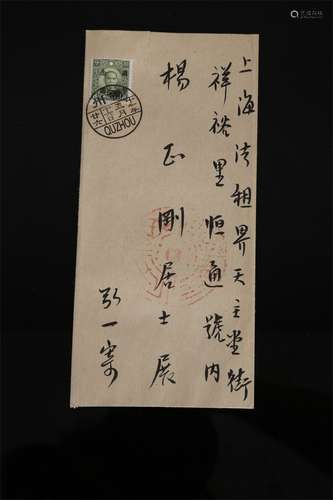 上海法租界天主堂街
祥裕里恒通號内
楊正剛居士展
弘一寄
QUZHOU